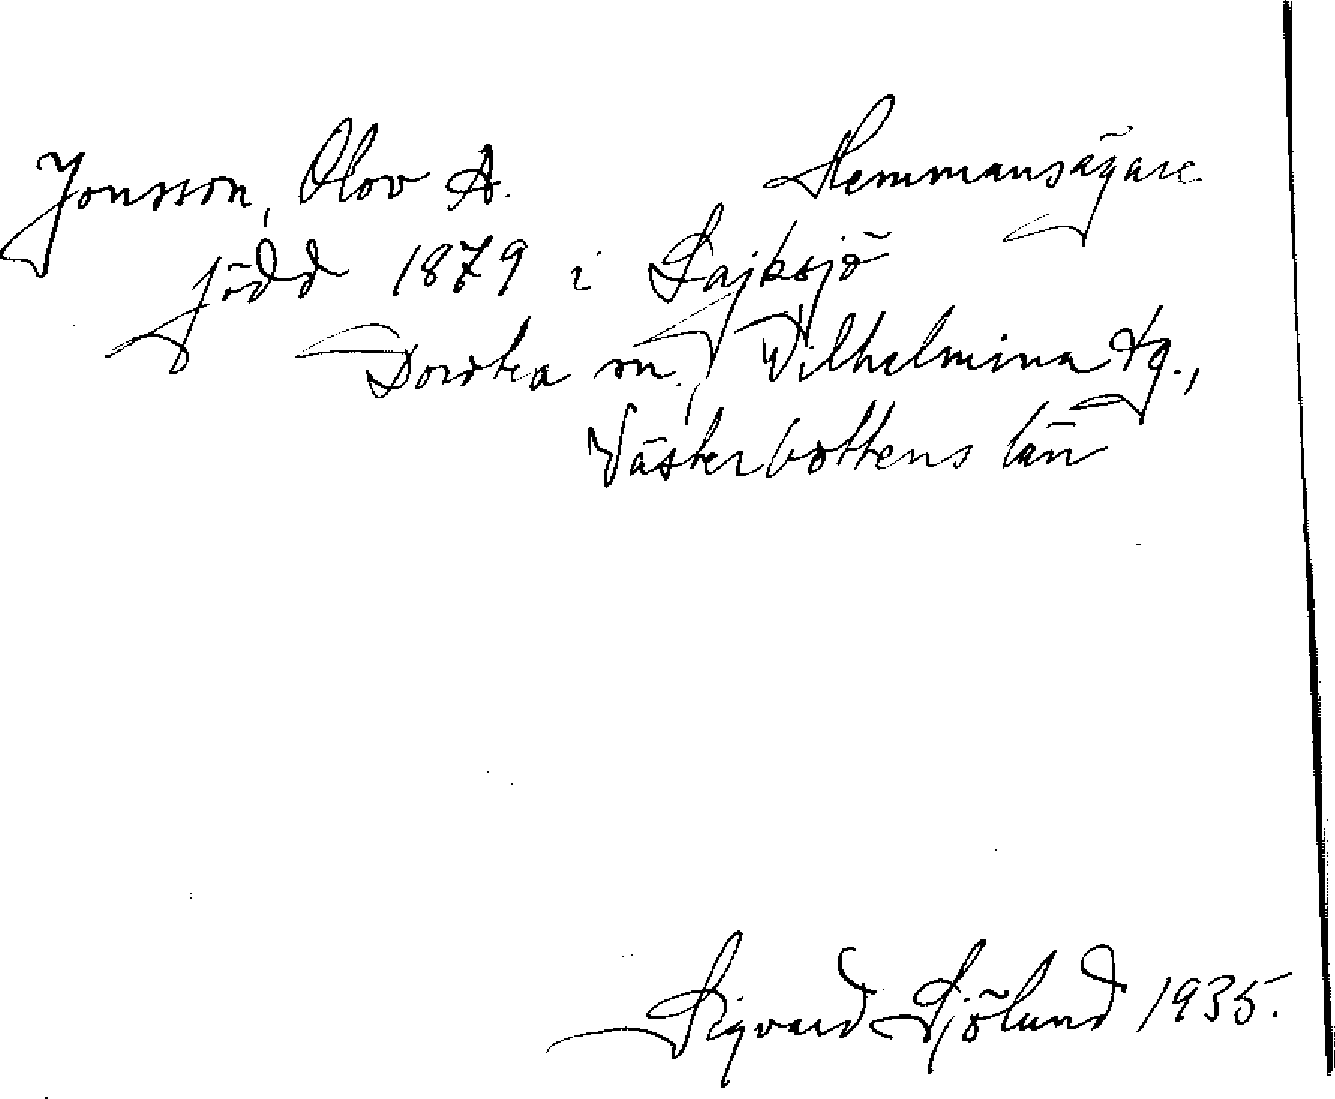 Jonsson, Olov A. Hemmansägare
född 1879 i Lajksjö
Dorotea sn., Vilhelmina tg.,
Västerbottens län
Sigvard Sjölund 1935.